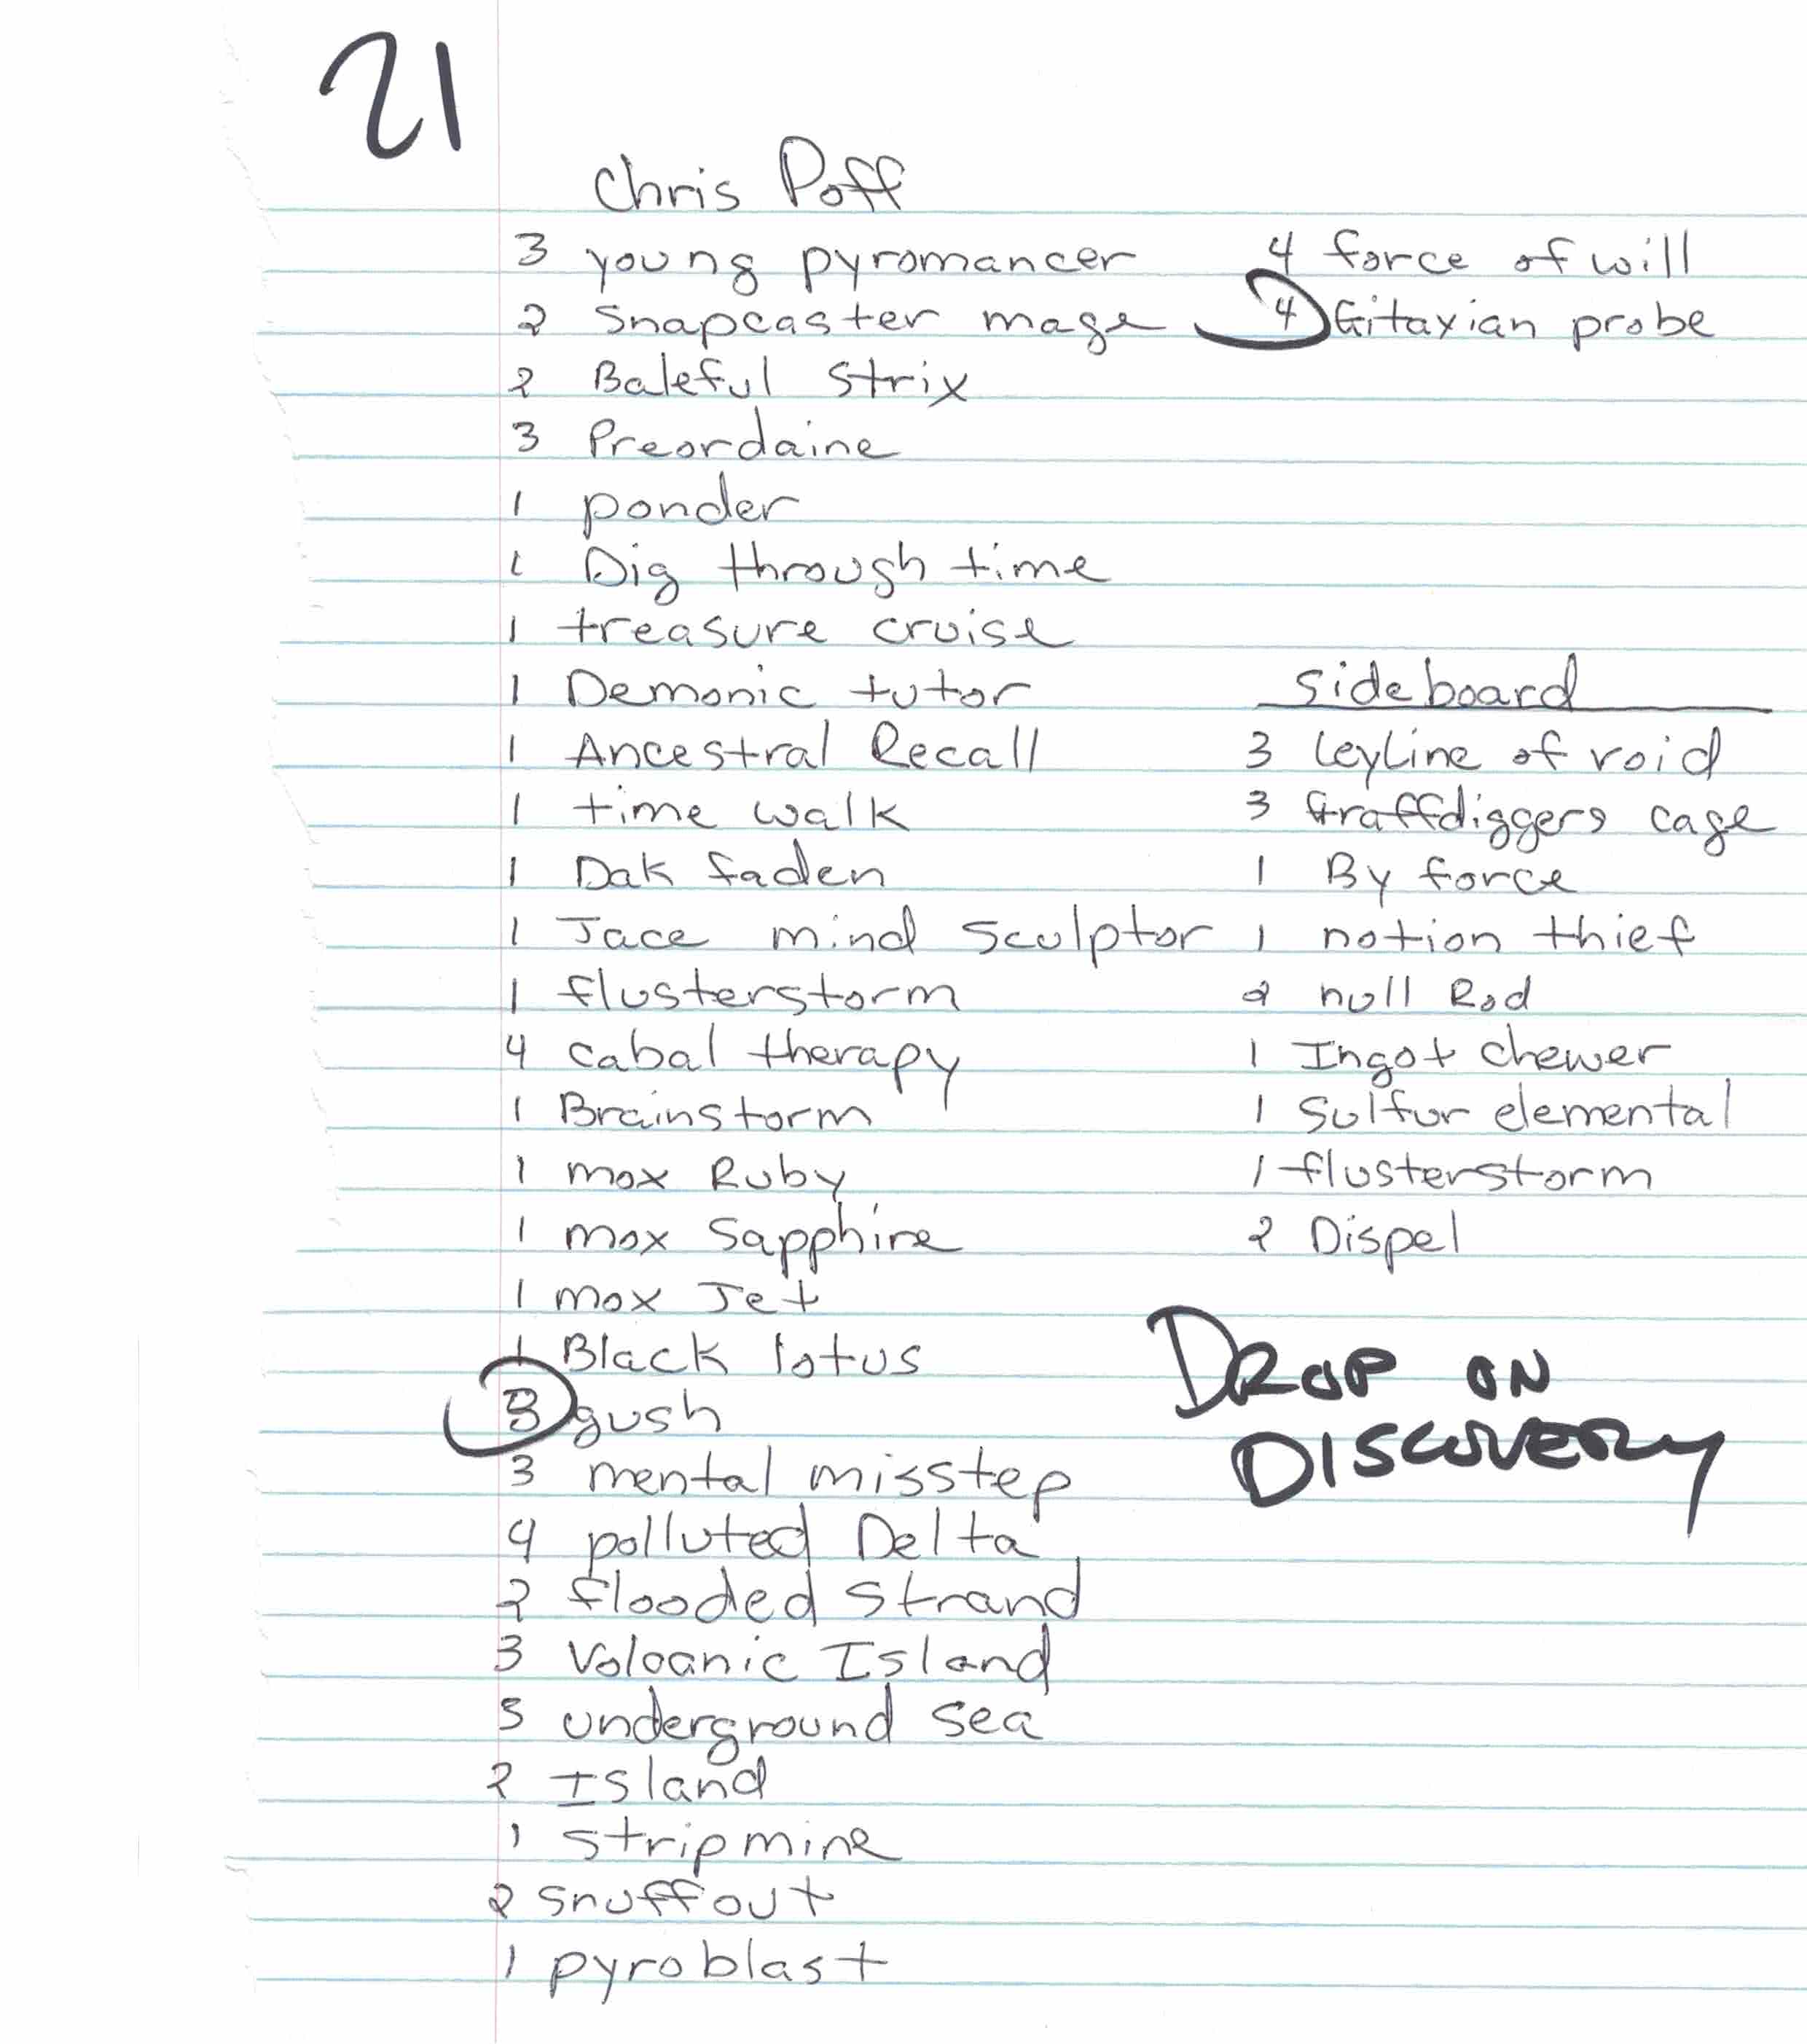 21
Chris Poff
3 young pyromancer
2 Snapcaster mage
2 Baleful Strix
3 Preordaine
1 ponder
1 Dig through time
1 treasure cruise
1 Demonic tutor
1 Ancestral Recall
1 time walk
1 Dak faden
1 Jace mind sculptor
1 flusterstorm
4 cabal therapy
1 Brainstorm
1 mox Ruby
1 mox Sapphire
1 mox Jet
1 Black lotus
3 gush
3 mental misstep
4 polluted Delta
2 flooded Strand
3 Volcanic Island
3 underground sea
2 Island
1 stripmine
2 snuffout
1 pyroblast
4 force of will
4 Gitaxian probe
Sideboard
3 leyline of void
3 Graffdiggers cage
1 By force
1 notion thief
2 null Rod
1 Ingot chewer
1 Sulfur elemental
1 flusterstorm
2 Dispel
DROP ON
DISCOVERY